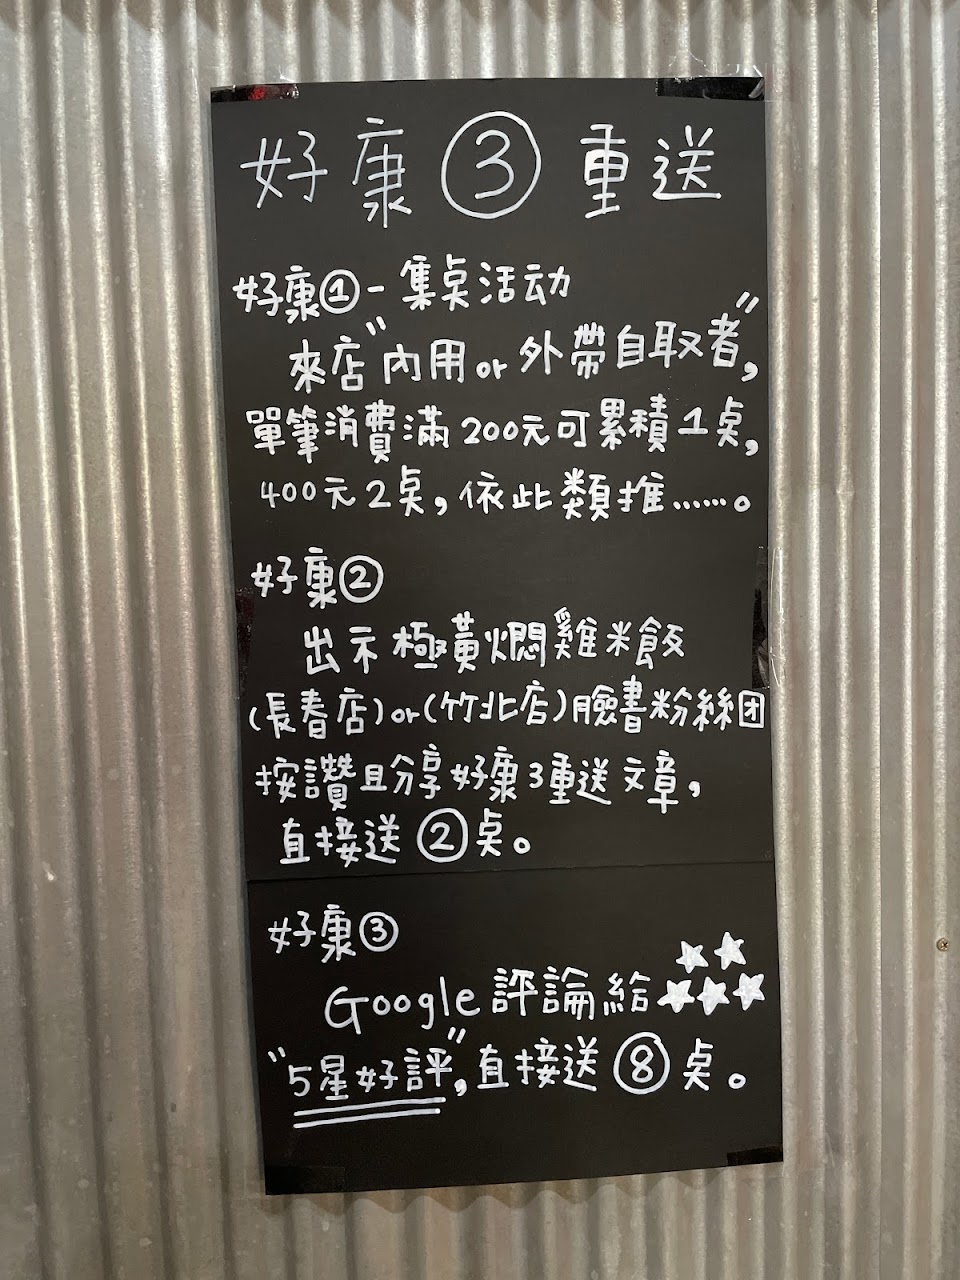 好康③重送
好康①-集桌活动
來店"內用or外帶自取者",
單筆消費滿200元可累積1桌,
400元2桌,依此類推……。
好康②
出示極黃燜雞米飯
(長春店)or(竹北店)臉書粉絲团
按讚且分享好康3重送文章,
直接送②桌。
好康③
Google評論給★★★★★
"5星好評",直接送⑧桌。